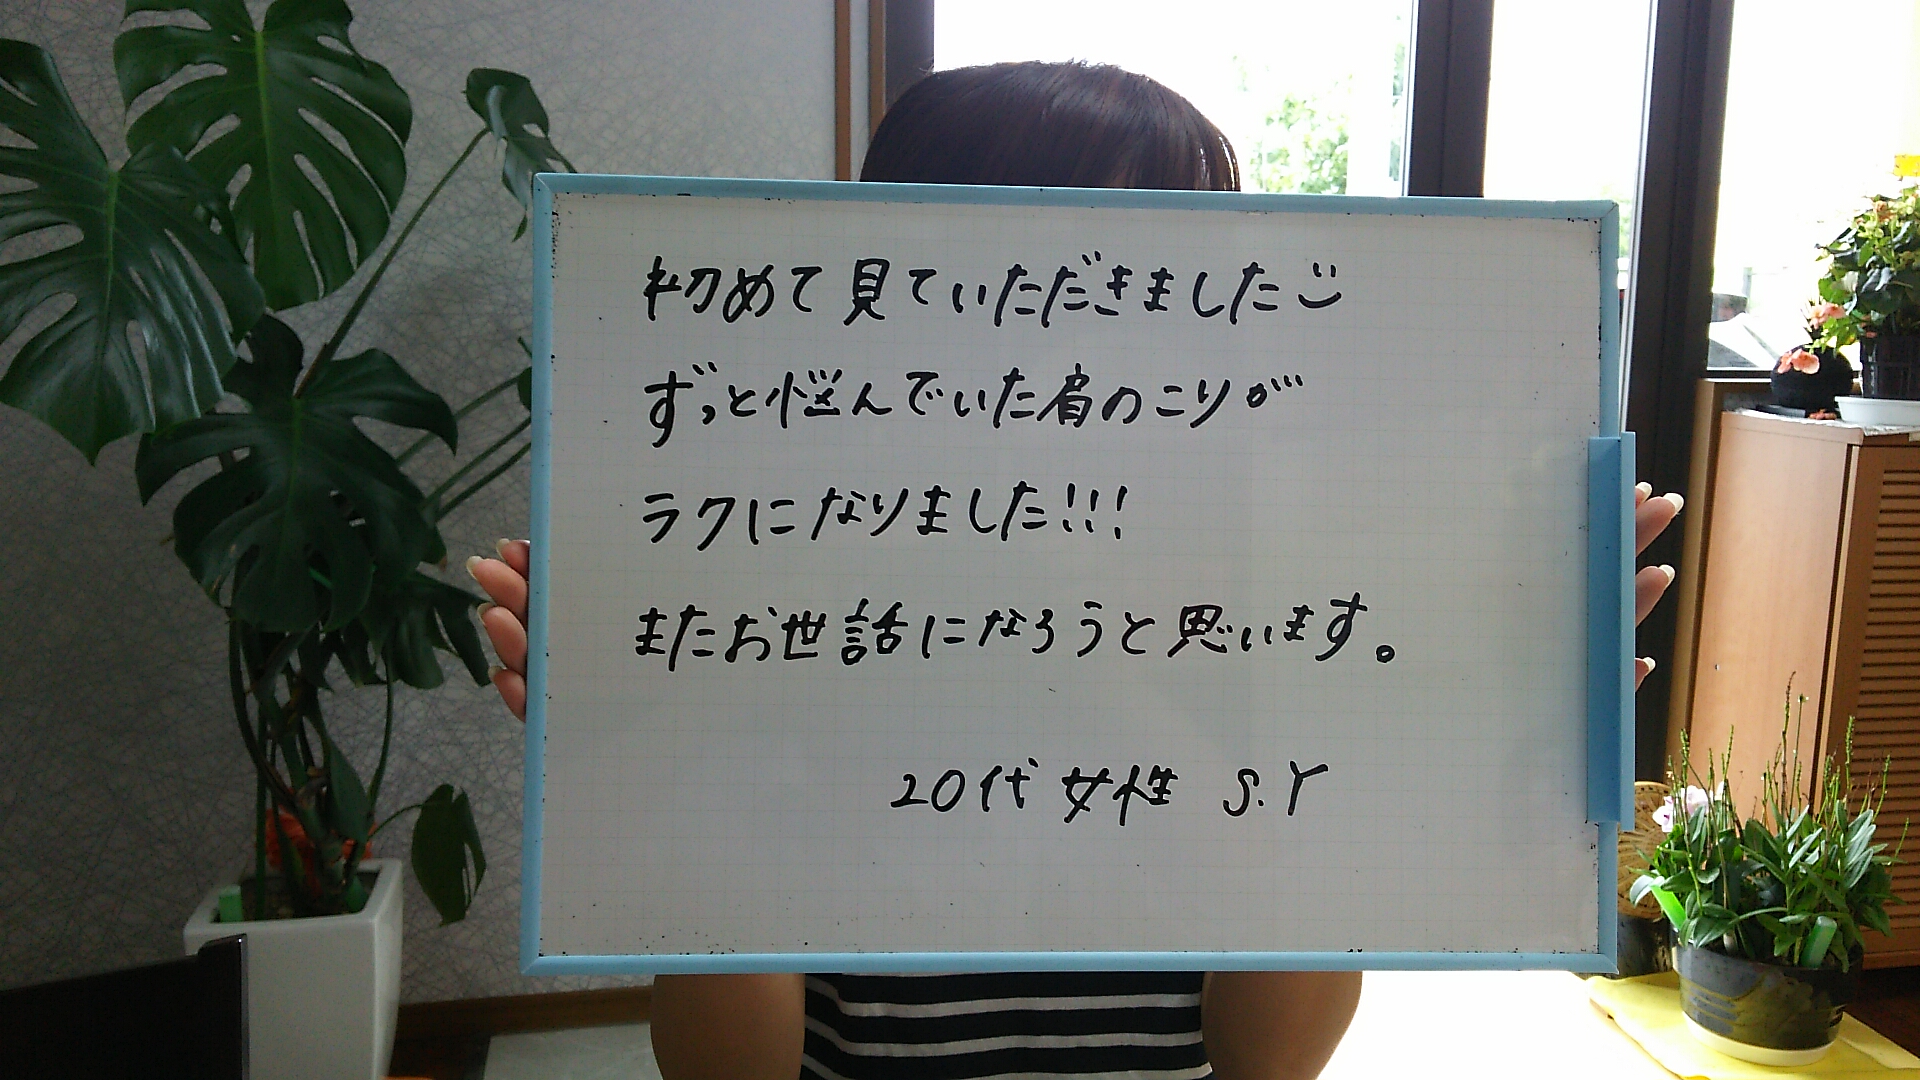 初めて見ていただきました
ずっと悩んでいた肩のこりが
ラクになりました!!!
またお世話になろうと思います。
20代 女性 S.Y